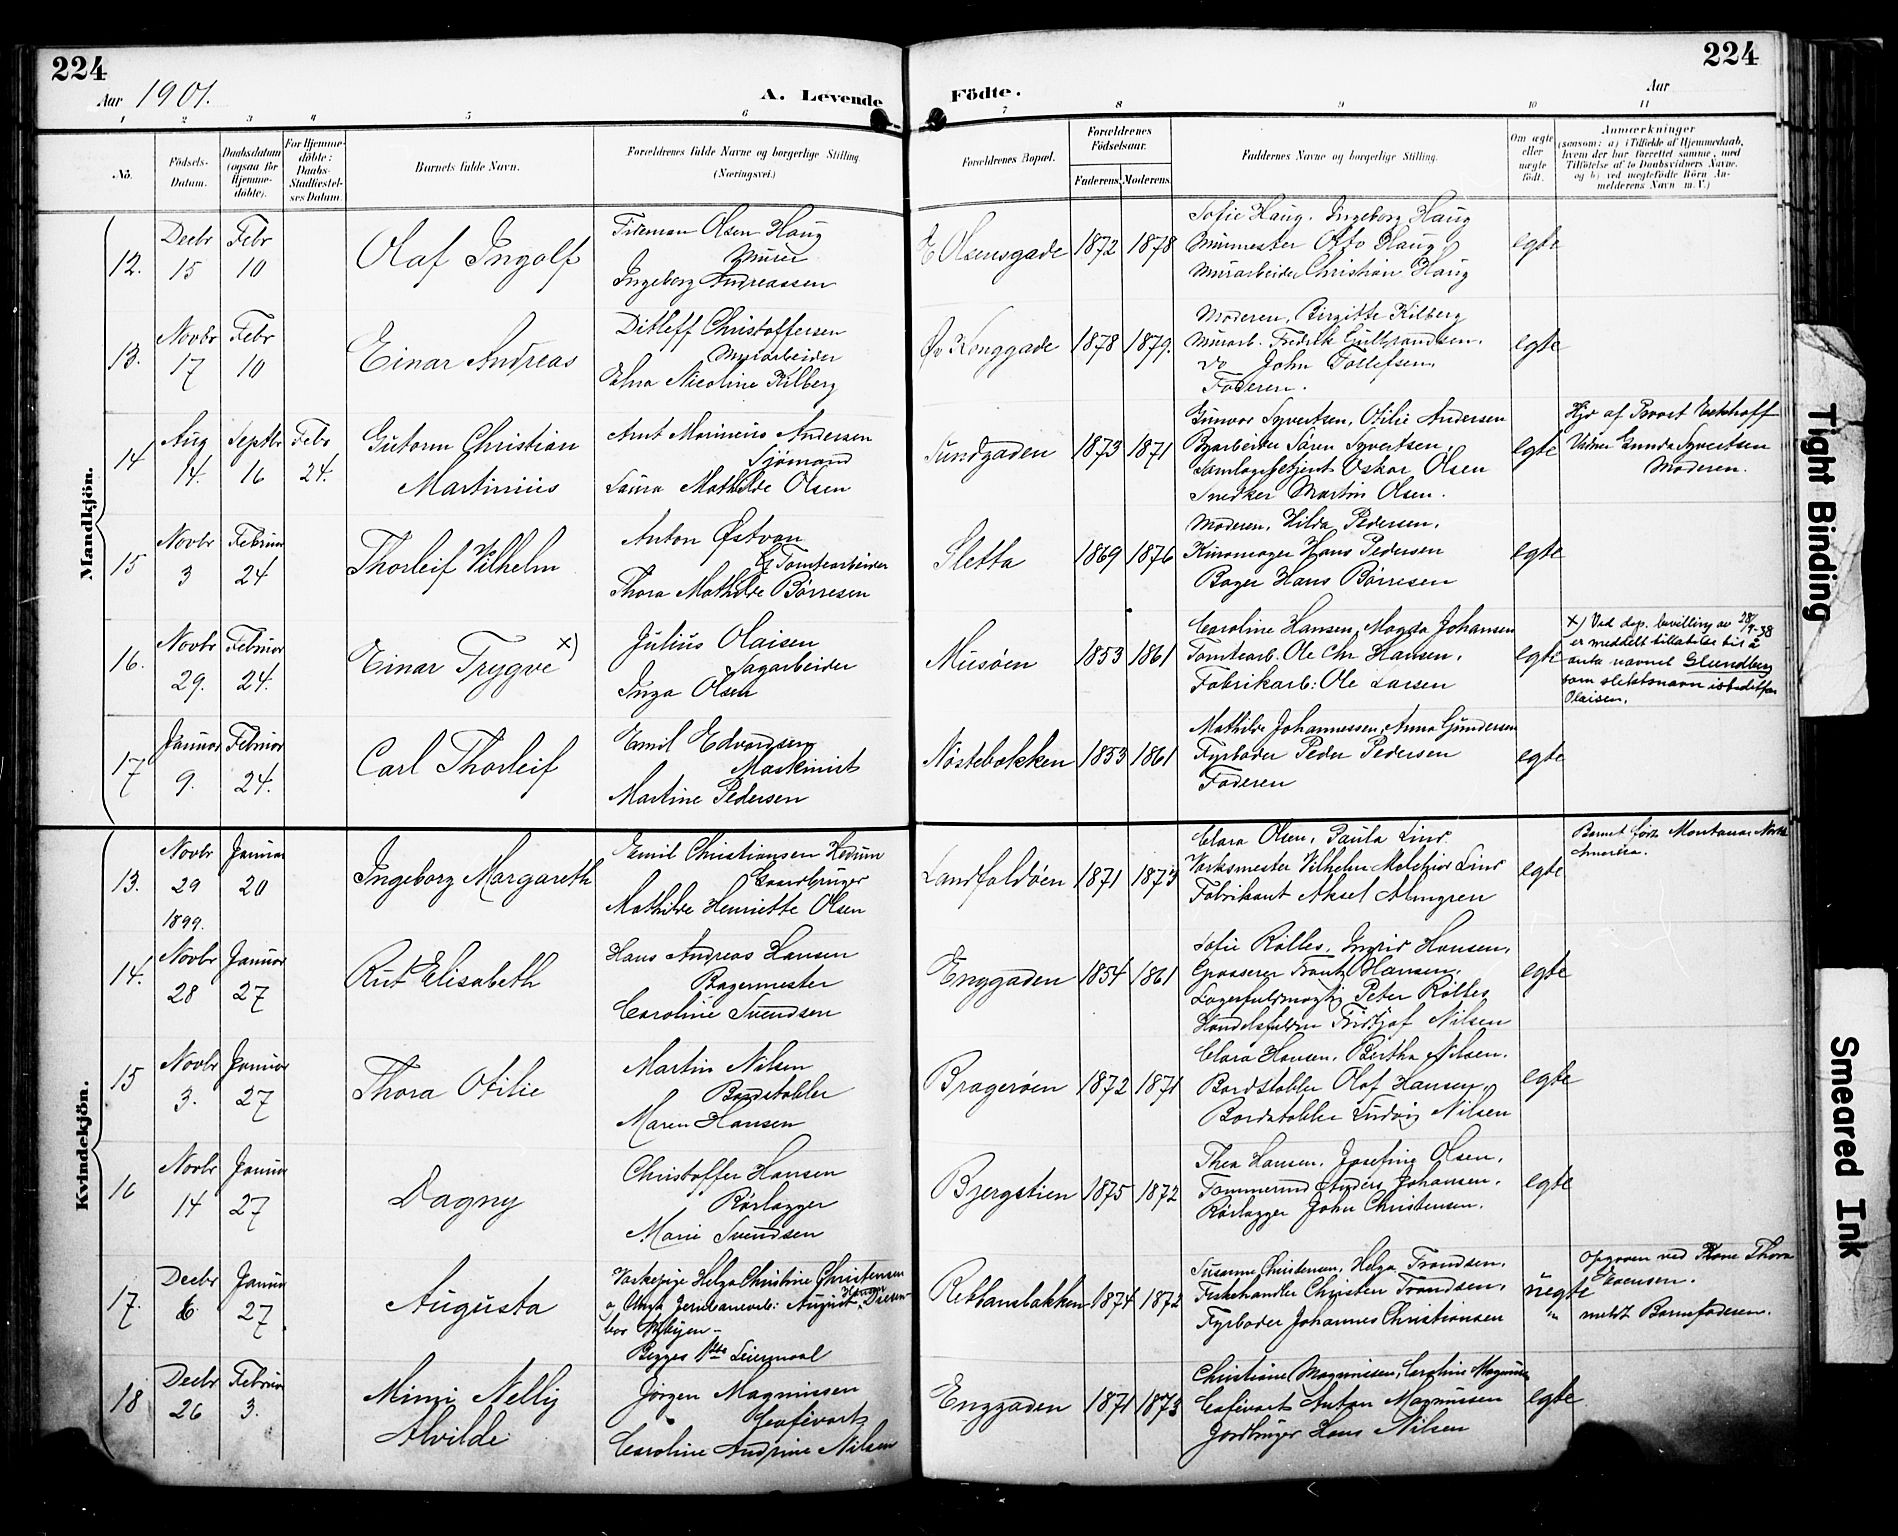 224
224
Aar 1901.
A. Levende
Födte.
Aar
1 2 3 4 5 6 7 8 9 10 11
No.
Födsels-
Datum.
Daabsdatum
(ogsaa for
Hjemme-
döbte).
For Hjemme-
döbte:
Daabs-
Stadfæstel-
ses Datum.
Barnets fulde Navn.
Forældrenes fulde Navne og borgerlige Stilling
(Næringsvei.)
Forældrenes Bopæl.
Forældrenes
Födselsaar.
Faderens. Moderens.
Faddernes Navne og borgerlige Stilling.
Om ægte
eller
uægte
födt.
Anmærkninger
(saasom: a) i Tilfælde af Hjemmedaab,
hvem der har forrettet samme, med
Tilföielse af to Daabsvidners Navne,
og b) ved uægtefödte Börn An-
melderens Navn m. V.)
Mandkjön.
12.
Decbr
15
Febr
10
Olaf Ingolf
Olsen Haug
Murer
Ingeborg Andreassen
E Olsensgade
1872
1878
Sofie Haug. Ingeborg Haug
Murmester Otto Haug
Murarbeider Christian Haug
egte
13.
Novbr
17
Febr
10
Einar Andreas
Ditleff Christoffersen
Murarbeider
Nicoline Kilberg
Øv Konggade
1878
1879.
Moderen, Birgitte Kilberg
Murarb. Fredrik Gulbrandsen.
do John Tollefsen.
Faderen.
egte
14
Aug
14.
Septbr
16
Febr
24.
Gutorm Christian
Martinius
Arnt Marinius Andersen
Sjömand
Laura Mathilde Olsen
Sundgaden
1873
1871
Gunvor Syvertsen, Otilie Andersen
Byarbeider Sören Syvertsen,
Samlagsbetjent Oskar Olsen
Snedker Martin Olsen.
egte
Hjd af Provst Eckhoff
Vidner Gunda Syvertsen
Moderen.
15
Novbr
3
Februar
24
Thorleif Vilhelm
Anton Østvan
Tomtearbeider
Thora Mathilde Börresen
Sletta
1869
1876
Moderen, Hilda Pedersen.
Hans Pedersen
Bager Hans Börresen
egte
16.
Novbr
29.
Februar
24.
Einar Trygve x)
Julius Olaisen
Sagarbeider
Inga Olsen
Musöen
1853
1861
Caroline Hansen, Magda Johansen
Tomtearb. Ole Chr Hansen.
Fabrikarb: Ole Larsen
egte
x) Ved dep. bevilling av 28/9-38
er meddelt tillatelse til å
anta navnet Slundberg
som slektsnavn istedetfor
Olaisen.
17
Januar
9.
Februar
24.
Carl Thorleif
Emil Edvardsen
Maskinist
Martine Pedersen
Nöstebakken
1853
1861
Mathilde Johannessen, Anna Gundersen
Fyrböder Peder Pedersen
Faderen
egte
Kvindekjön.
13.
Novbr
29
1899.
Januar
20
Ingeborg Margareth
Emil Christiansen Hedum
Gaardbruger
Mathilde Henriette Olsen
Landfaldöen
1871
1873
Clara Olsen, Paula Lind
Værksmester Vilhelm Melchior Lind
Fabrikant Aksel Almgren
egte
Barnet født Montana Nord
Amerika.
14.
Novbr
28
Januar
27
Rut Elisabeth
Hans Andreas Hansen
Bagermester
Caroline Svendsen
Enggaden
1854
1861
Sofie Rolles, Ingrid Hansen,
Grosserer Frantz Hansen.
Lagerfuldmægtig Peter Rolles
Handelsfuldm Fridtjof Nilsen
egte
15
Novbr
3.
Januar
27
Thora Otilie
Martin Nilsen
Bordstabler
Maren Hansen
Bragerøen
1872
1871
Clara Hansen, Bertha Nilsen.
Bordstabler Olaf Hansen,
Bordstabler Ludvig Nilsen
egte
16
Novbr
14
Januar
27
Dagny
Christoffer Hansen
Rörlægger
Marie Svendsen
Bjergstien
1875
1872
Thea Hansen, Josefine Olsen,
Tømmermd Anders Johansen.
Rörlægger John Christensen.
egte
17.
Decbr
6
Januar
27
Augusta
Vaskepige Helga Christine Christensen
o, Ungk Jernbanearb: August Hansen
bor
Begges 1ste Leiermaal
Rektorbakken
1874
1872
Susanne Christensen, Helga Trondsen.
Fiskehandler Christen Trondsen,
Fyrböder Johannes Christiansen
uegte
Opgaven ved Kone Thora
meldt Barnefaderen.
18
Decbr
26
Februar
3.
Mimi Nelly
Alvilde
Jörgen Magnussen
Cafévært
Caroline Andrine Nilsen
Enggaden
1871
1873
Christiane Magnussen, Caroline Magnussen
Cafévært Anton Magnussen
Jordbruger Hans Nilsen
egte
Tight Binding
Smeared Ink